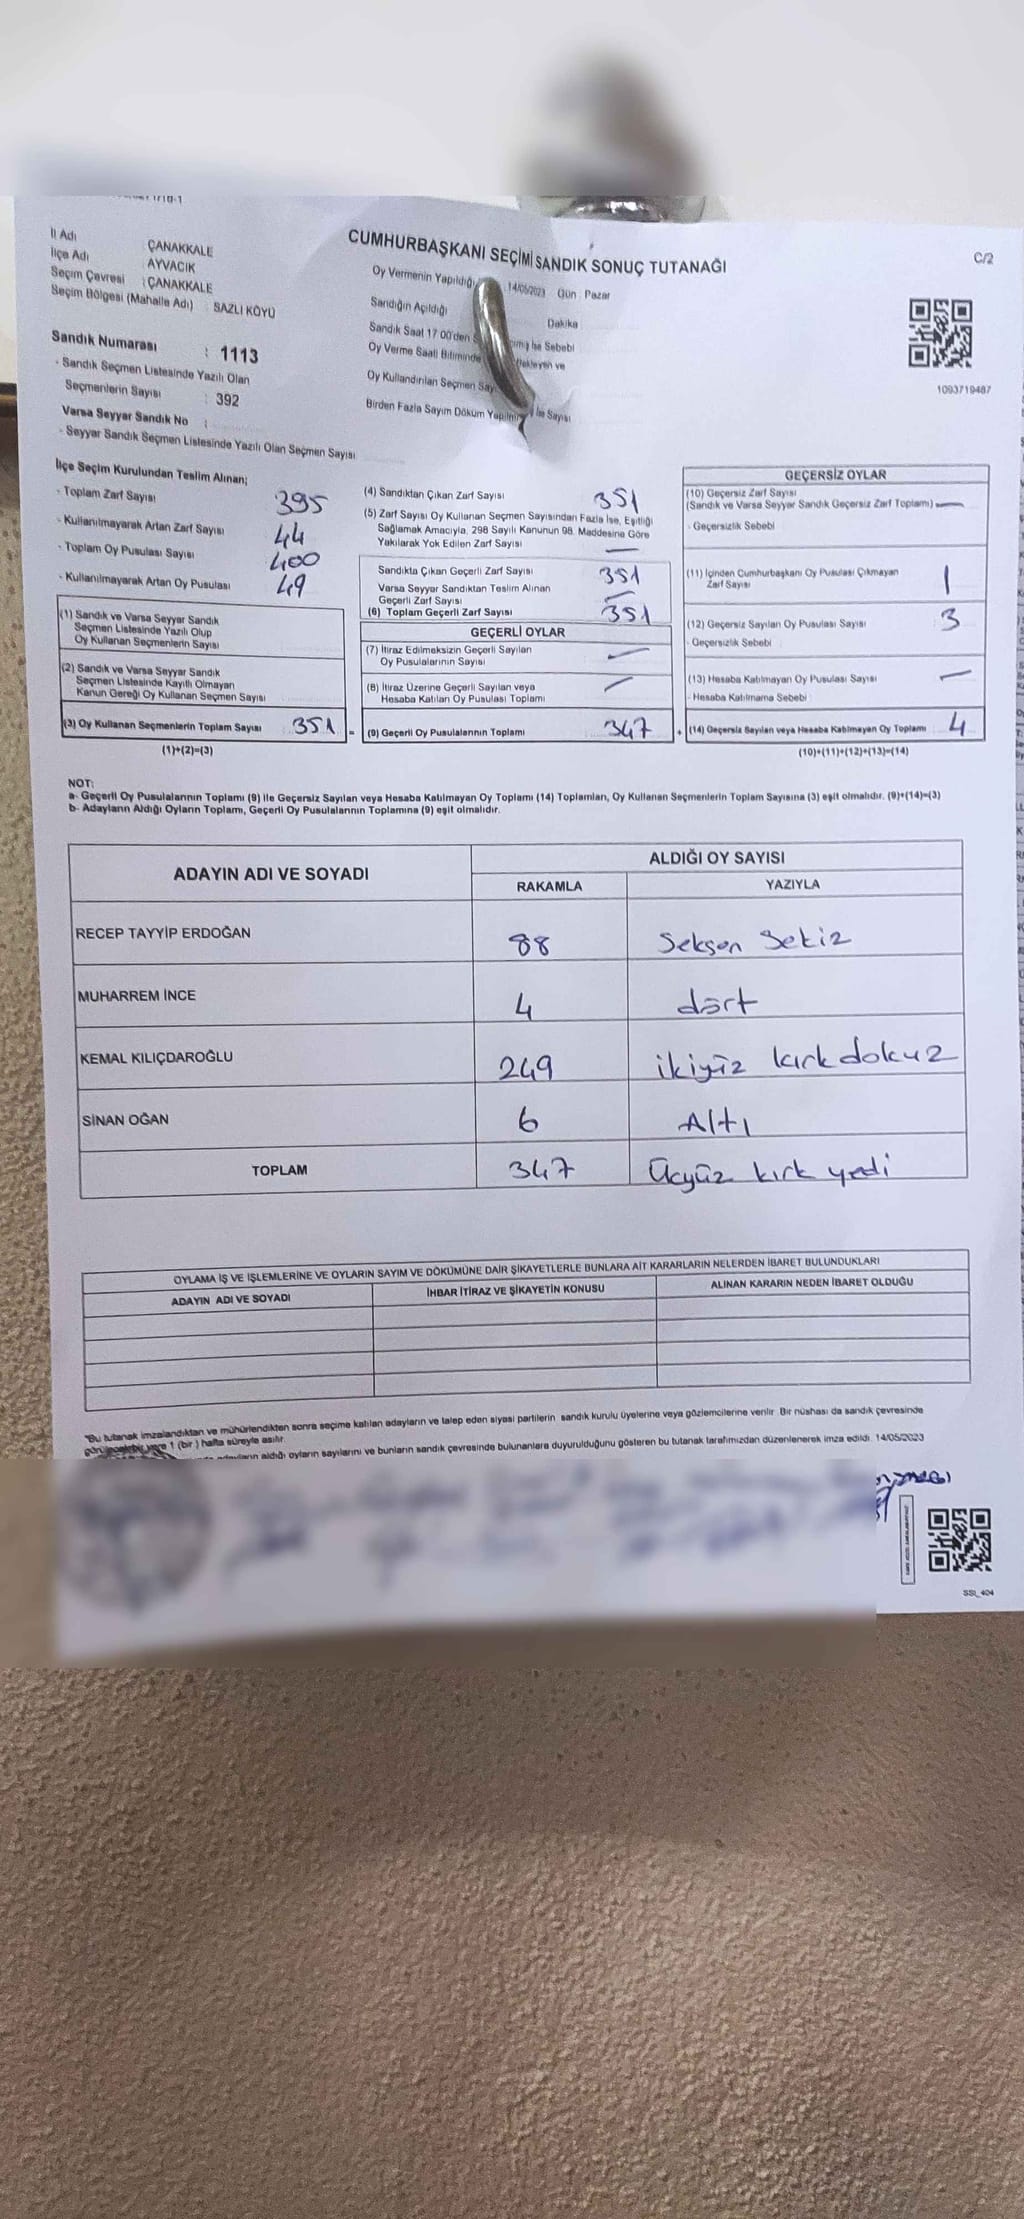 İl Adı : ÇANAKKALE
İlçe Adı : AYVACIK
Seçim Çevresi : ÇANAKKALE
Seçim Bölgesi (Mahalle Adı) : SAZLI KÖYÜ
Sandık Numarası : 1113
- Sandık Seçmen Listesinde Yazılı Olan
Seçmenlerin Sayısı : 392
Varsa Seyyar Sandık No :
- Seyyar Sandık Seçmen Listesinde Yazılı Olan Seçmen Sayısı
CUMHURBAŞKANI SEÇİMİ SANDIK SONUÇ TUTANAĞI
C/2
Oy Vermenin Yapıldığı 14/05/2023 Gün : Pazar
Sandığın Açıldığı Dakika
Sandık Saat 17 00'den İse Sebebi
Oy Verme Saati Bitiminde Bekleyen ve
Oy Kullandırılan Seçmen
Birden Fazla Sayım Döküm İse Sayısı
1093719487
İlçe Seçim Kurulundan Teslim Alınan;
- Toplam Zarf Sayısı 395
- Kullanılmayarak Artan Zarf Sayısı 44
- Toplam Oy Pusulası Sayısı 400
- Kullanılmayarak Artan Oy Pusulası 49
(1) Sandık ve Varsa Seyyar Sandık
Seçmen Listesinde Yazılı Olup
Oy Kullanan Seçmenlerin Sayısı
(2) Sandık ve Varsa Seyyar Sandık
Seçmen Listesinde Kayıtlı Olmayan
Kanun Gereği Oy Kullanan Seçmen Sayısı
(3) Oy Kullanan Seçmenlerin Toplam Sayısı 351
(1)+(2)=(3)
(4) Sandıktan Çıkan Zarf Sayısı 351
(5) Zarf Sayısı Oy Kullanan Seçmen Sayısından Fazla İse, Eşitliği
Sağlamak Amacıyla, 298 Sayılı Kanunun 98. Maddesine Göre
Yakılarak Yok Edilen Zarf Sayısı —
Sandıkta Çıkan Geçerli Zarf Sayısı 351
Varsa Seyyar Sandıktan Teslim Alınan
Geçerli Zarf Sayısı —
(6) Toplam Geçerli Zarf Sayısı 351
GEÇERLİ OYLAR
(7) İtiraz Edilmeksizin Geçerli Sayılan
Oy Pusulalarının Sayısı —
(8) İtiraz Üzerine Geçerli Sayılan veya
Hesaba Katılan Oy Pusulası Toplamı —
= (9) Geçerli Oy Pusulalarının Toplamı 347
GEÇERSİZ OYLAR
(10) Geçersiz Zarf Sayısı
(Sandık ve Varsa Seyyar Sandık Geçersiz Zarf Toplamı) —
- Geçersizlik Sebebi
(11) İçinden Cumhurbaşkanı Oy Pusulası Çıkmayan
Zarf Sayısı 1
(12) Geçersiz Sayılan Oy Pusulası Sayısı : 3
- Geçersizlik Sebebi :
(13) Hesaba Katılmayan Oy Pusulası Sayısı : —
- Hesaba Katılmama Sebebi :
+ (14) Geçersiz Sayılan veya Hesaba Katılmayan Oy Toplamı 4
(10)+(11)+(12)+(13)=(14)
NOT:
a- Geçerli Oy Pusulalarının Toplamı (9) ile Geçersiz Sayılan veya Hesaba Katılmayan Oy Toplamı (14) Toplamları, Oy Kullanan Seçmenlerin Toplam Sayısına (3) eşit olmalıdır. (9)+(14)=(3)
b- Adayların Aldığı Oyların Toplamı, Geçerli Oy Pusulalarının Toplamına (9) eşit olmalıdır.
ADAYIN ADI VE SOYADI ALDIĞI OY SAYISI
RAKAMLA YAZIYLA
RECEP TAYYİP ERDOĞAN 88 Seksen Sekiz
MUHARREM İNCE 4 dört
KEMAL KILIÇDAROĞLU 249 ikiyüz kırk dokuz
SİNAN OĞAN 6 Altı
TOPLAM 347 Üçyüz kırk yedi
OYLAMA İŞ VE İŞLEMLERİNE VE OYLARIN SAYIM VE DÖKÜMÜNE DAİR ŞİKAYETLERLE BUNLARA AİT KARARLARIN NELERDEN İBARET BULUNDUKLARI
ADAYIN ADI VE SOYADI İHBAR İTİRAZ VE ŞİKAYETİN KONUSU ALINAN KARARIN NEDEN İBARET OLDUĞU
"Bu tutanak imzalandıktan ve mühürlendikten sonra seçime katılan adayların ve talep eden siyasi partilerin sandık kurulu üyelerine veya gözlemcilerine verilir. Bir nüshası da sandık çevresinde
görülecek bir yere 1 (bir) hafta süreyle asılır.
adayların aldığı oyların sayılarını ve bunların sandık çevresinde bulunanlara duyurulduğunu gösteren bu tutanak tarafımızdan düzenlenerek imza edildi. 14/05/2023
SSI_404